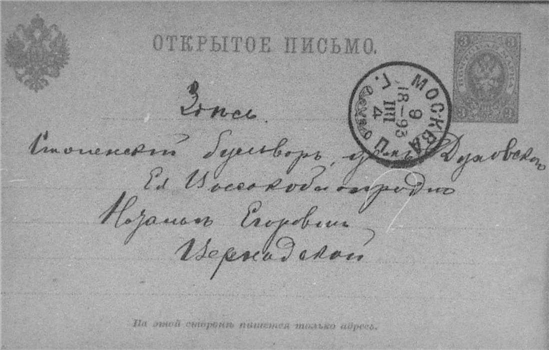 ОТКРЫТОЕ ПИСЬМО.
МОСКВА
9
III
18-93
4
Здѣсь
Смоленский бульваръ, Духовской
Ея Высокоблагородію
Наталье Егоровнѣ
Вернадской
На этой сторонѣ пишется только адресъ.